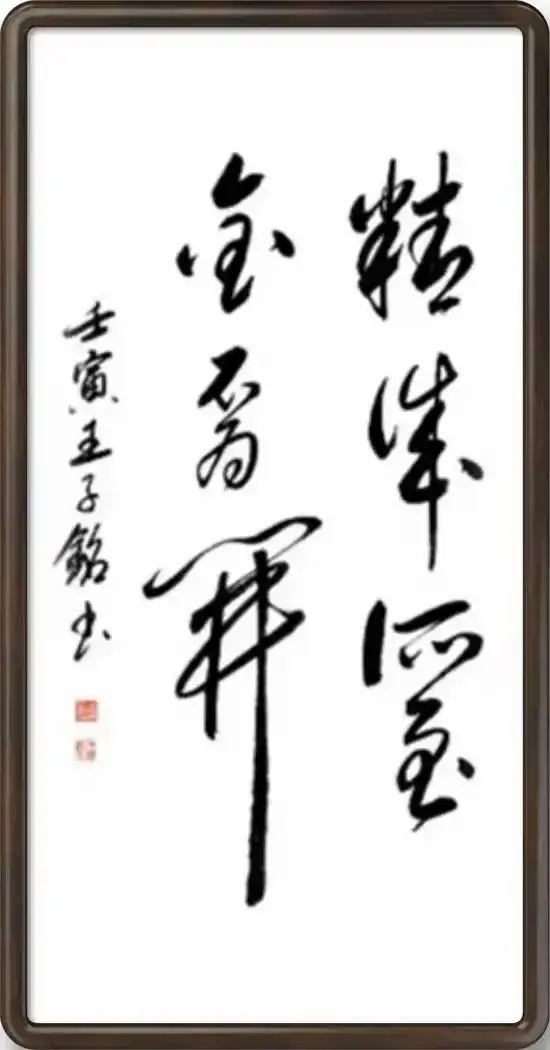 精诚所至
金石為開
壬寅王子銘书